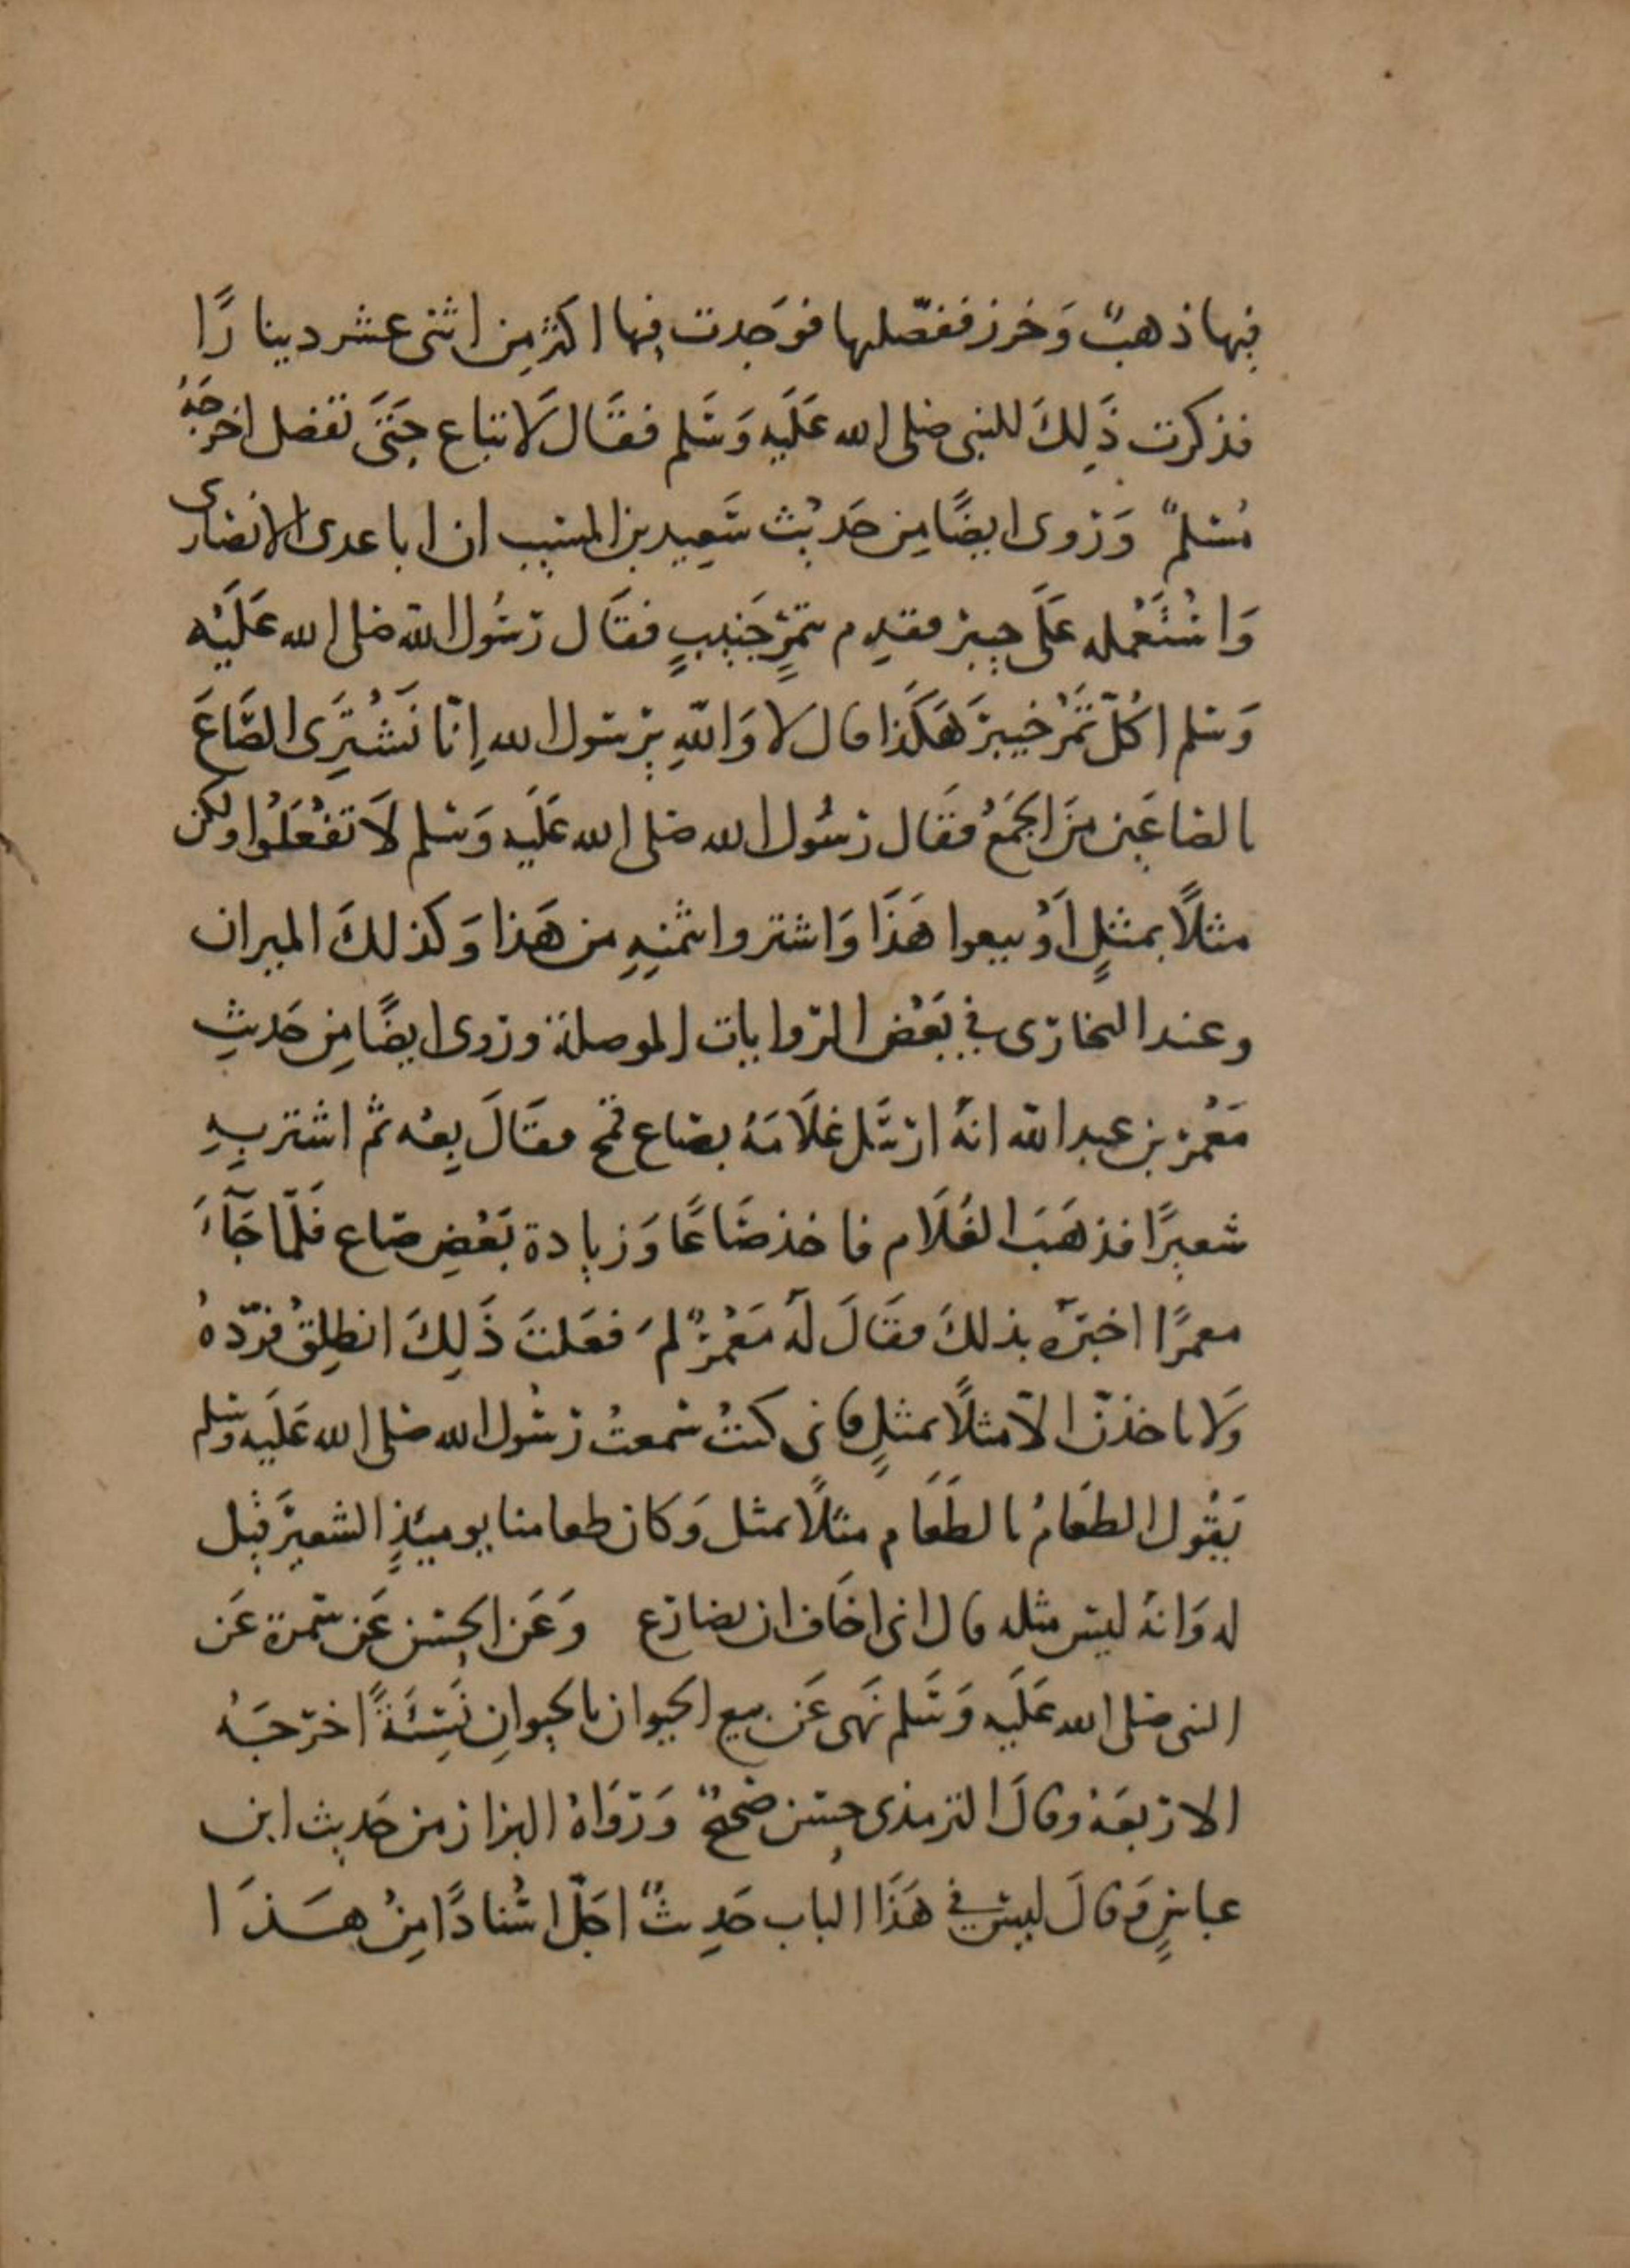 فيها ذهبٌ وَخرز ففصّلها فوَجدت فيها اكثر مِن اثنى عشر دينارًا
فذكرت ذَلِكَ للنبى صلى الله عَلَيه وَسَلم فقَال لَا تباع حَتَى تفصل اخرجَهُ
مُسلمٌ وَروى ايضًا مِن حَديث سَعِيد بن المسيب ان ابا عدى الانصارى
وَاسْتَعْمله عَلَى خيبر فقدم بتمرٍ جَنيبٍ فقَال رَسُول الله صلى الله عَلَيْه
وَسلم اكُلّ تَمْر خيبَر هَكَذا قال لا وَاللهِ يرسول الله اِنّا نَشْتَرِى الصَّاعَ
بالصاعَين مِنَ الجَمْعِ فقَال رَسُول الله صلى الله عَلَيه وَسلم لَا تَفْعَلُوا ولكن
مثلًا بمثلٍ اَوْ بيعوا هَذَا وَاشتروا بثمنِهِ من هَذا وَكذلكَ الميزان
وعند البخارى فى بَعْض الروايات الموصلة وروى ايضًا مِن حَديثِ
مَعْمر بن عبد الله انهُ ارْسَل غلَامَهُ بصاع قمح فقَالَ بِعْه ثم اشتر بِهِ
شعيرًا فذهَبَ الغُلَام فاخذ صَاعًا وَزيادة بَعْضِ صاع فَلمّا جَآءَ
معمرًا اخبَرَه بذلكَ فقَالَ لَهُ مَعْمرٌ لمَ فعَلتَ ذَلِكَ انطلِقْ فرُدّهُ
وَلا تاخذنّ الّا مثلًا بمثلٍ فانى كنتُ سَمعتُ رَسُول الله صلى الله عَلَيه وَسلم
يَقُول الطعَامُ بالطَعَام مثلًا بمثل وَكان طعامنا يوميئذٍ الشعيرَ قيل
له وَانهُ ليس مثله قال انى اخَاف ان يضارع وَعَن الحسن عَن سَمرة عَن
النبى صلى الله عَلَيه وَسَلم نَهى عَن بيع الحيوان بالحيوانِ نَسِئَةً اخرَجَهُ
الاربعَة وقالَ الترمذى حسن صَحيحٌ وَرَوَاهُ البزاز من حَديث ابن
عباسٍ وَقالَ ليسَ فى هَذَا الباب حَدِيثٌ اجَلّ اسْنادًا مِنْ هَذَا